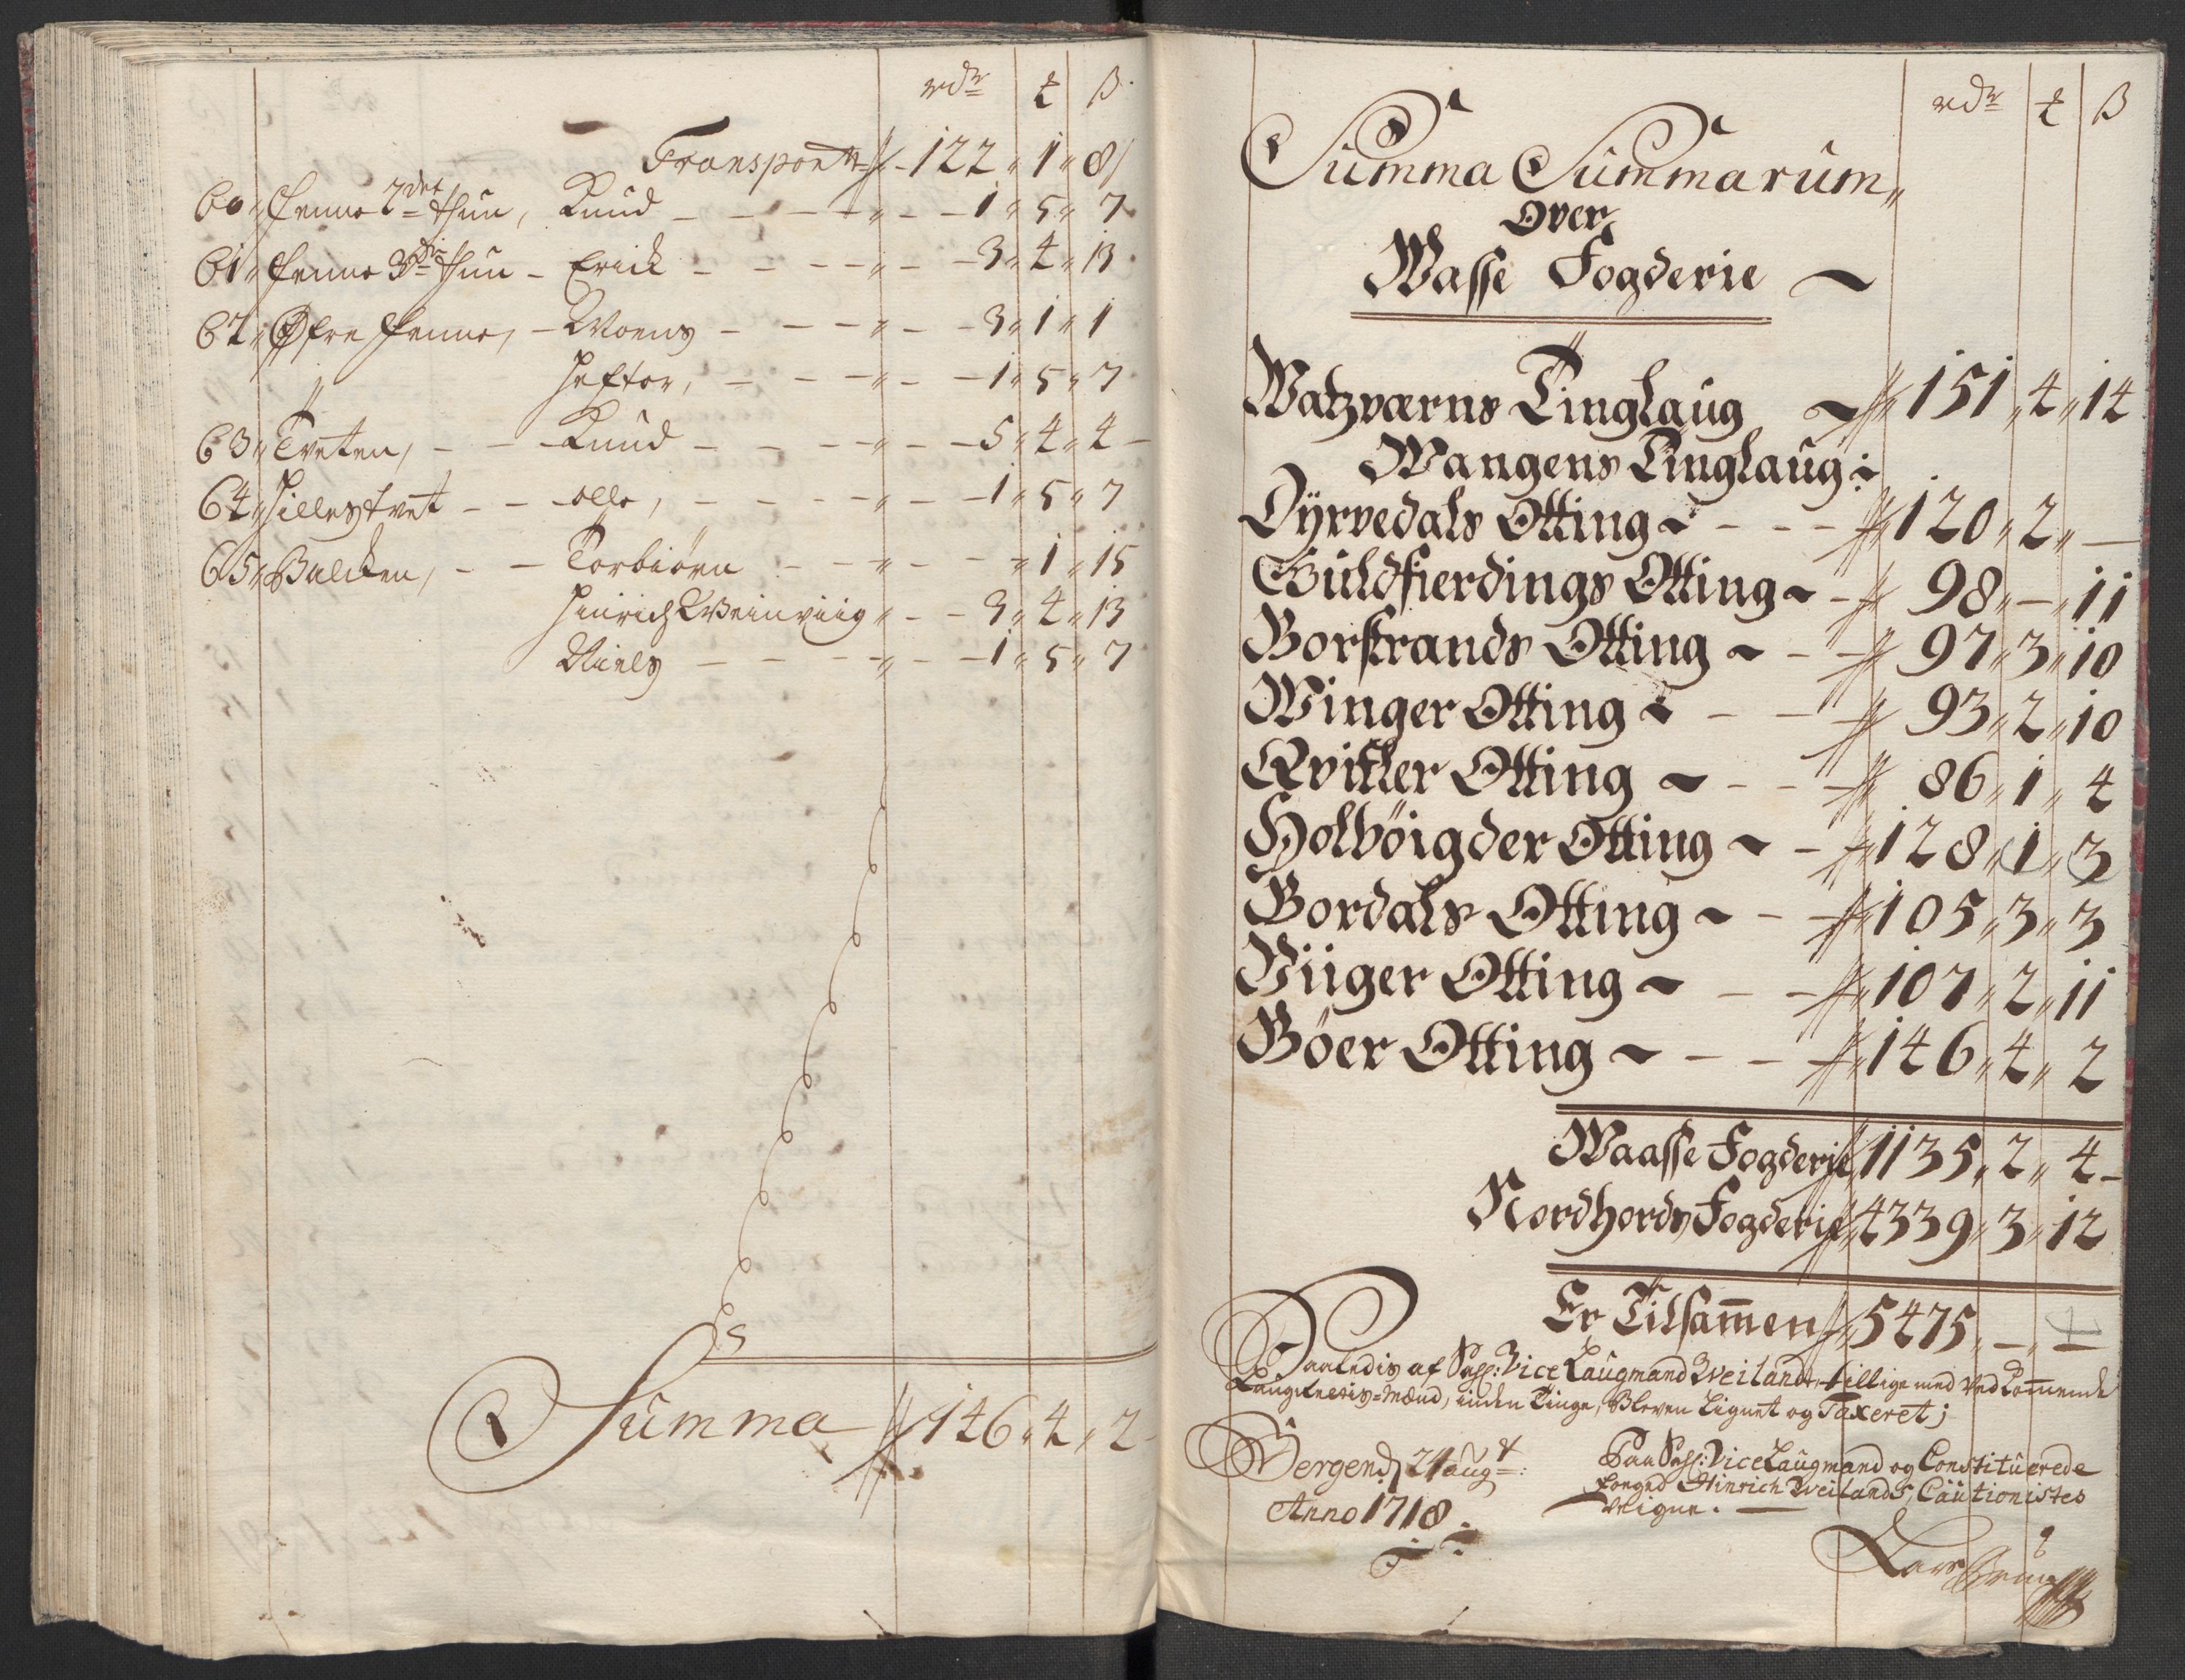 rdr ȶ ß
Transport 122 1 8
60 Fenne 2det Thun, Knud 1 5 7
61 Fenne 3die Thun Erick 3 4 13
62 Øfre Fenne, Moens 3 1 1
Heftor, 1 5 7
63 Tveten, Knud 5 4 4
64 Hillestvet olle, 1 5 7
65 Balcken, Torbiørn 1 15
Hinrich Weinviig 3 4 13
Niels 1 5 7
Summa 146 4 2
rdr ȶ ß
Summa Summarum
Over
Wasse Fogderie
Watzværns Tinglaug 151 4 14
Wangens Tinglaug:
Dyrvedals Otting 120 2 —
Guldfierdings Otting 98 — 11
Borstrands Otting 97 3 10
Winger Otting 93 2 10
Qvitler Otting 86 1 4
Holbøigder Otting 128 1 3
Bordals Otting 105 3 3
Viiger Otting 107 2 11
Bøer Otting 146 4 2
Waasse Fogderie 1135 2 4
Nordhords Fogderie 4339 3 12
Er Tilsam̅en 5475 — —
Saaledis af Sahl: Vice Laugmand Weiland, tillige med Vedkom̅ende
Laugrettis-Mænd, inden Tinge, Bleven Lignet og Taxeret;
Bergen d 24 Augst:
Anno 1718.
Paa Sahl: Vice Laugmand og Constituerede
Foeged Hinrich Weilands, Cautionistes
Veigne.
Lars